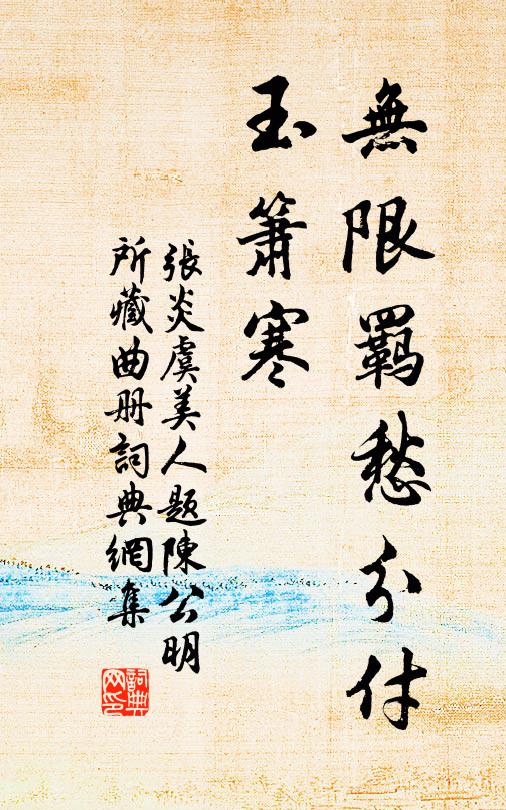 無限羈愁分付
玉簫寒
張炎虞美人題陳公明
所藏曲册詞典網集
詞典
网印